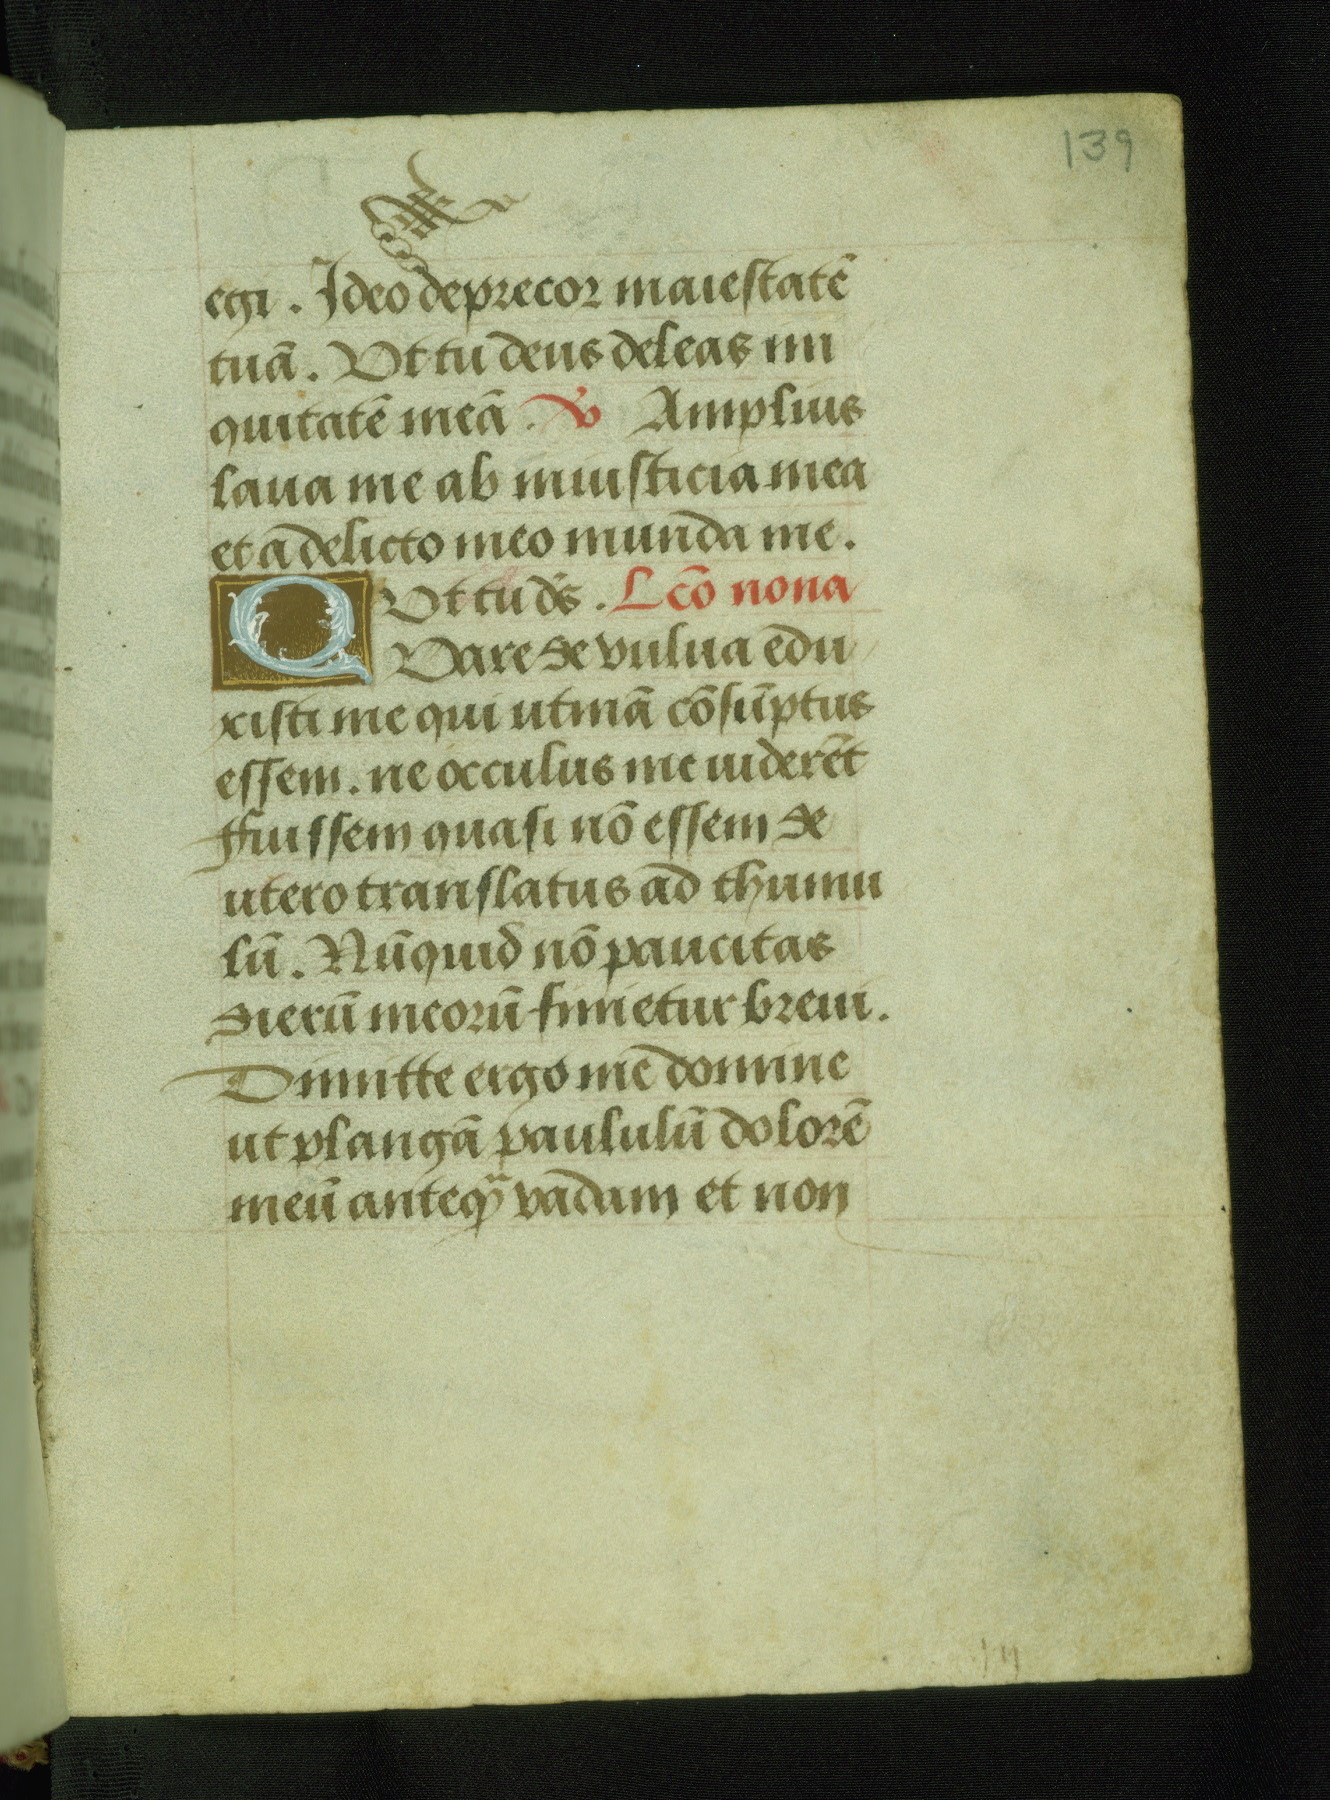 139
egi . Ideo deprecor maiestatē
tuā . Ut tu deus deleas ini
quitatē meā . V Amplius
laua me ab iniusticia mea
et a delicto meo munda me .
Ut tu ds̄ . Lc̄o nona
Quare de vulua edu
xisti me qui utinā cōsūptus
essem . ne occulus me uiderēt
ffuissem quasi nō essem de
utero translatus ad thumu
lū . Nūquid nō paucitas
dierū meorū finietur breui .
Dimitte ergo me domine
ut plangā paululū dolorē
meū anteqᵃ vadam et non